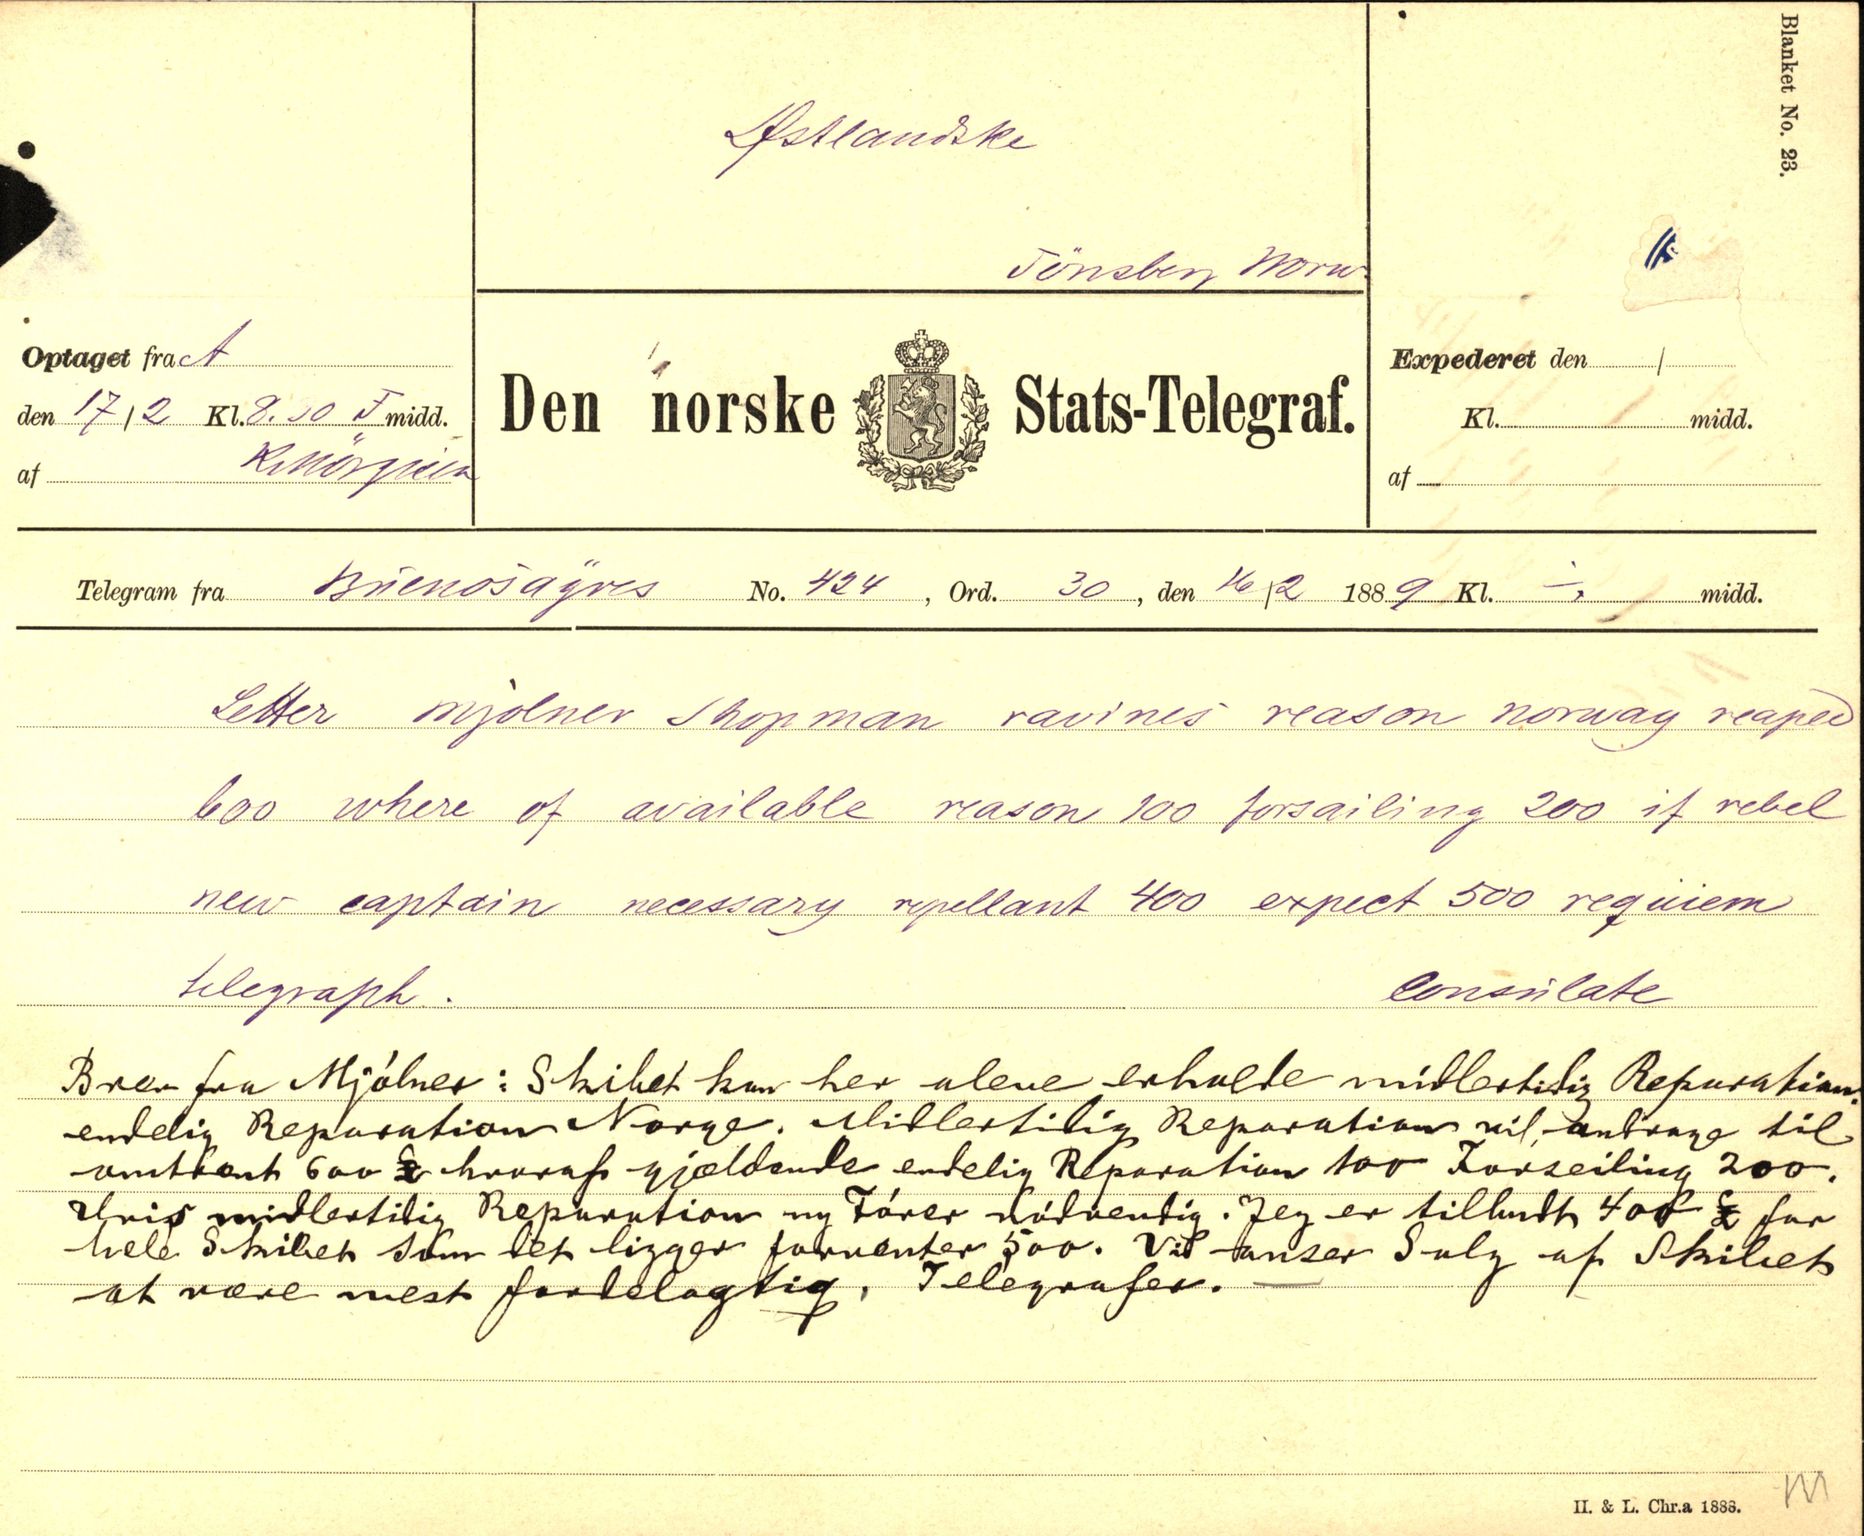 Blanket No. 23.
Østlandske
Tönsberg Norw.
Optaget fra A
den 17/2 Kl. 8.30 F midd.
af
Den norske Stats-Telegraf.
Expederet den /
Kl. midd.
af
Telegram fra Buenosayres No. 424, Ord. 30, den 16/2 1889 Kl. midd.
Letter mjolner Shopman ravines reason norway reaped
600 where of available reason 100 forsailing 200 if rebel
new captain necessary repellant 400 expect 500 requiem
telegraph. Consulate
Brev fra Mjölner: Skibet kan her alene erholde midlertidig Reparation.
endelig Reparation Norge. Midlertidig Reparation vil andrage til
omtrent 600 £ hvoraf gjældende endelig Reparation 100 Forseiling 200.
Hvis midlertidig Reparation ny Förer nödvendig. Jeg er tilbudt 400 £ for
hele Skibet som det ligger forventer 500. Vi anser Salg af Skibet
at være mest fordelagtig, Telegrafer.
H. & L. Chr.a 1888.